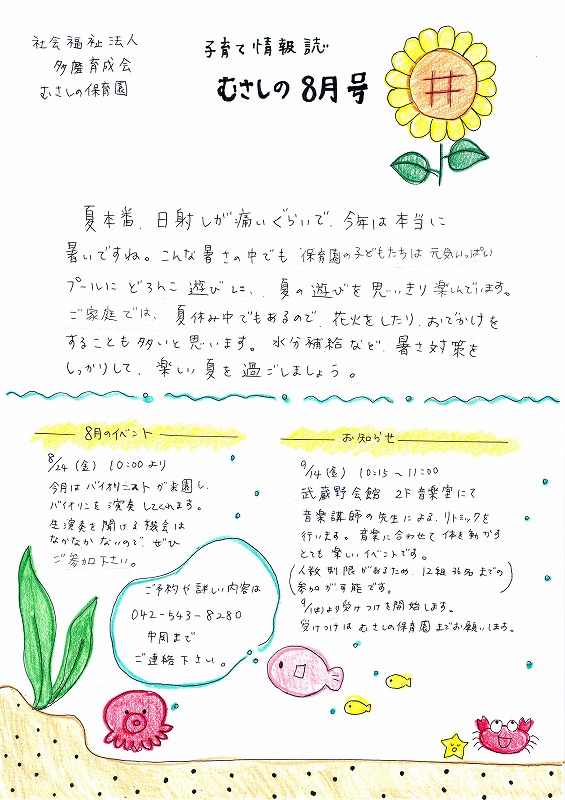 社会福祉法人
多磨育成会
むさしの保育園
子育て情報誌
むさしの 8月号
夏本番、日射しが痛いぐらいで、今年は本当に
暑いですね。こんな暑さの中でも 保育園の子どもたちは 元気いっぱい
プールに どろんこ 遊びに、夏の 遊びを 思いきり 楽しんでいます。
ご家庭では、夏休み中でもあるので、花火をしたり、おでかけを
することも 多いと 思います。水分補給など、暑さ対策を
しっかりして、楽しい夏を 過ごしましょう。
8月のイベント
8/24 (金) 10:00より
今月は バイオリニストが来園し、
バイオリンを演奏してくれます。
生演奏を聞ける機会は
なかなかないので、ぜひ
ご参加下さい。
ご予約や詳しい内容は
042-543-8280
中岡まで
ご連絡下さい。
お知らせ
9/14(金) 10:15～11:00
武蔵野会館 2F 音楽室にて
音楽講師の先生による、リトミックを
行います。音楽に合わせて 体を動かす
とても 楽しいイベントです。
(人数制限があるため、12組36名までの
参加が可能です。)
より受けつけを開始します。
受けつけは むさしの保育園までお願いします。